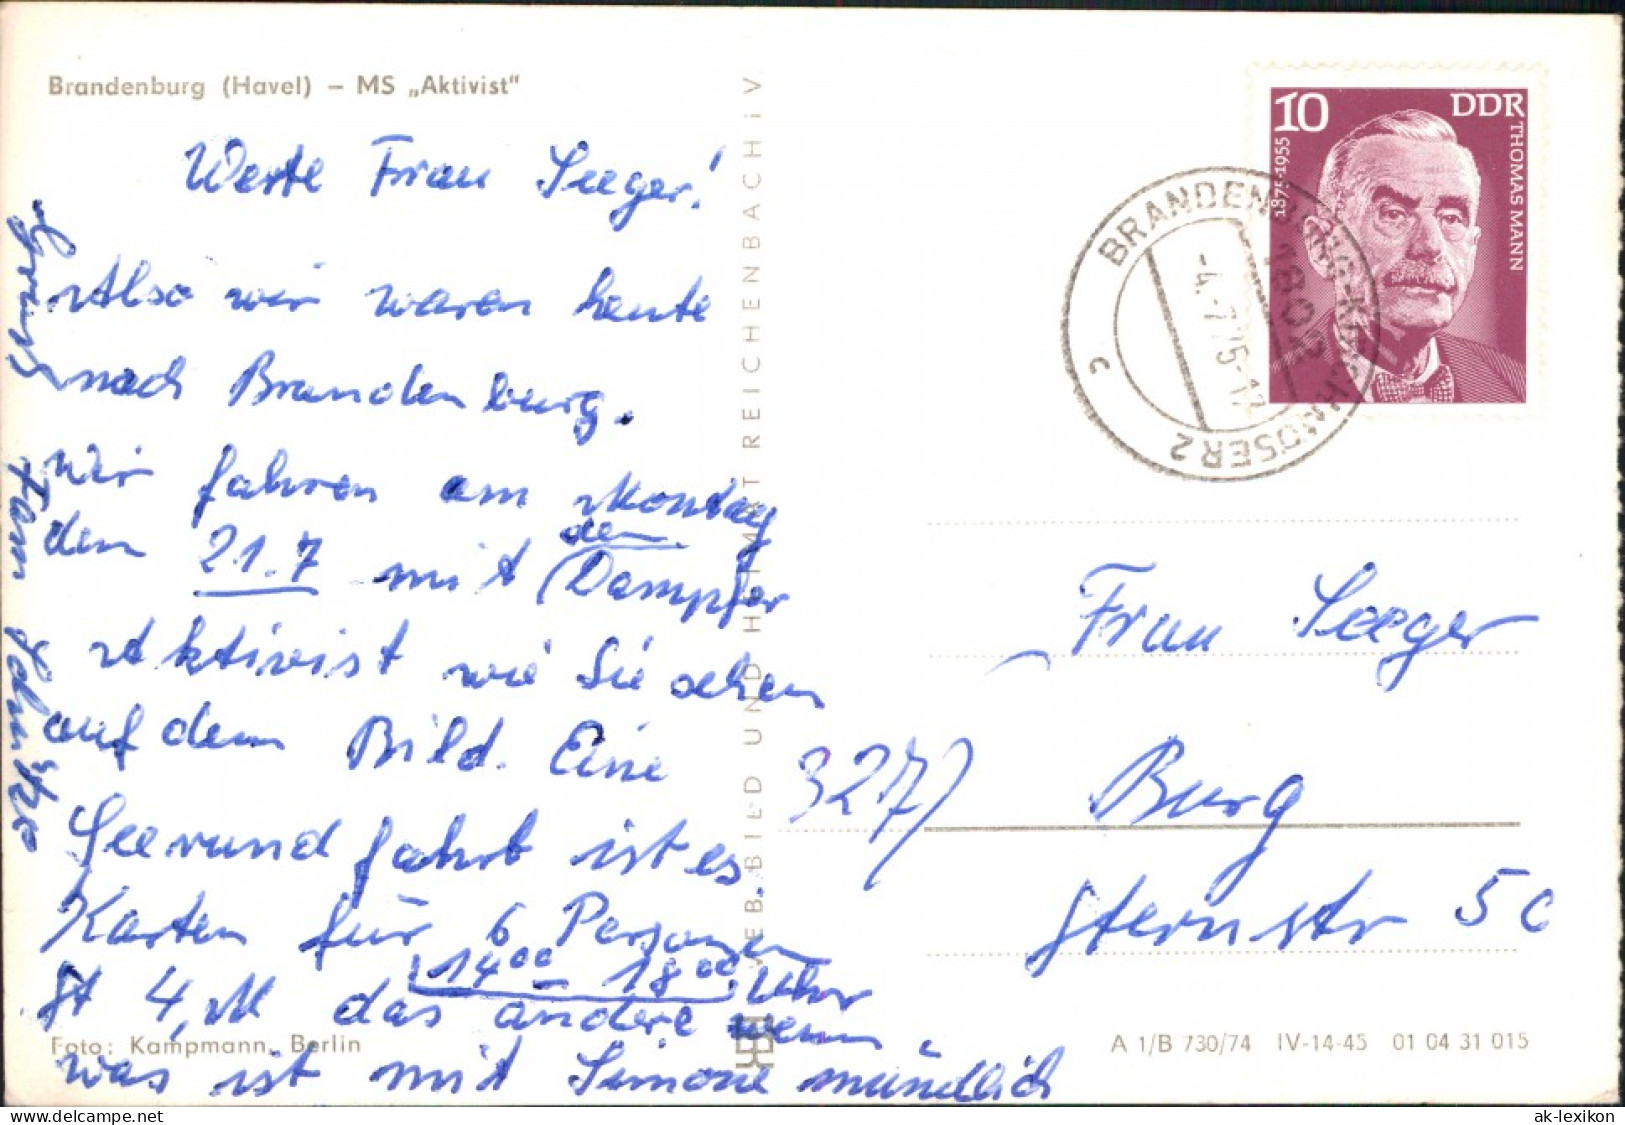 Brandenburg (Havel) – MS „Aktivist"
Werte Frau Seeger!
Also wir waren heute
nach Brandenburg.
Wir fahren am Montag
den 21.7 mit den Dampfer
Aktivist wie Sie sehen
auf dem Bild. Eine
Seerundfahrt ist es
14⁰⁰ – 18⁰⁰ Uhr
Karten für 6 Personen
St 4,M das andere wenn
was ist mit Simone mündlich
Gruß
Fam Schütze
Foto: Kampmann, Berlin
VEB BILD UND HEIMAT REICHENBACH i V
10
DDR
THOMAS MANN
1875-1955
BRANDENBURG-KIRCHMÖSER 2
1802
-4.-7.75-17
c
Frau Seeger
327) Burg
Sternstr 5c
A 1/B 730/74 IV-14-45 01 04 31 015
ak-lexikon